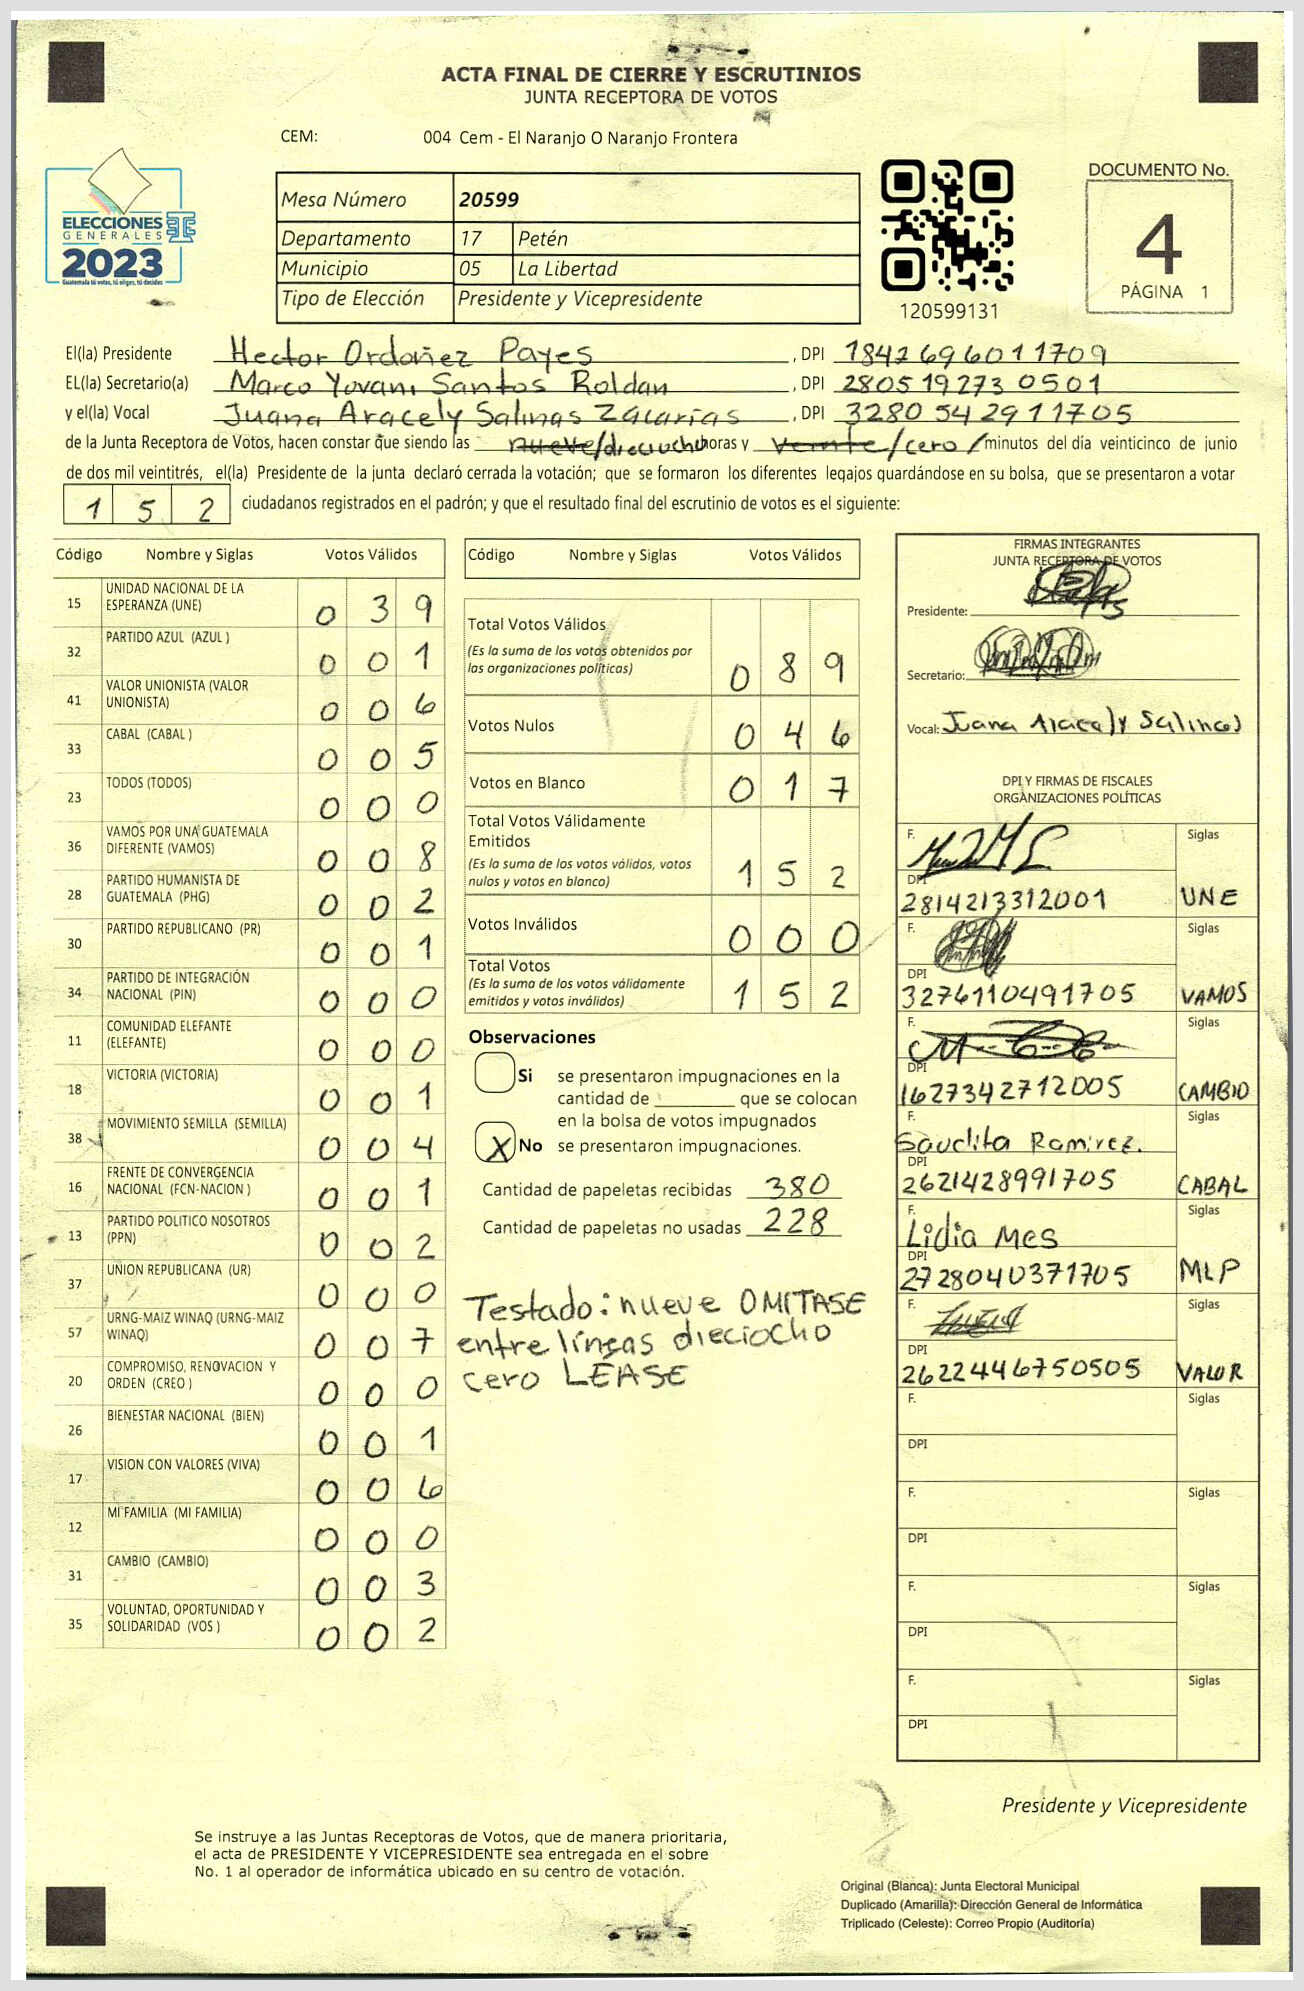 ACTA FINAL DE CIERRE Y ESCRUTINIOS
JUNTA RECEPTORA DE VOTOS
CEM: 004 Cem - El Naranjo O Naranjo Frontera
ELECCIONES
GENERALES
2023
Guatemala tú votas, tú eliges, tú decides
Mesa Número 20599
Departamento 17 Petén
Municipio 05 La Libertad
Tipo de Elección Presidente y Vicepresidente
120599131
DOCUMENTO No.
4
PÁGINA 1
El(la) Presidente Hector Ordoñez Payes, DPI 1842696011709
EL(la) Secretario(a) Marco Yovani Santos Roldan, DPI 2805192730501
y el(la) Vocal Juana Aracely Salinas Zacarias, DPI 3280542911705
de la Junta Receptora de Votos, hacen constar que siendo las nueve/dieciocho horas y veinte/cero/minutos del día veinticinco de junio
de dos mil veintitrés, el(la) Presidente de la junta declaró cerrada la votación; que se formaron los diferentes legajos guardándose en su bolsa, que se presentaron a votar
152 ciudadanos registrados en el padrón; y que el resultado final del escrutinio de votos es el siguiente:
Código Nombre y Siglas Votos Válidos
15 UNIDAD NACIONAL DE LA
ESPERANZA (UNE) 039
32 PARTIDO AZUL (AZUL ) 001
41 VALOR UNIONISTA (VALOR
UNIONISTA) 006
33 CABAL (CABAL ) 005
23 TODOS (TODOS) 000
36 VAMOS POR UNA GUATEMALA
DIFERENTE (VAMOS) 008
28 PARTIDO HUMANISTA DE
GUATEMALA (PHG) 002
30 PARTIDO REPUBLICANO (PR) 001
34 PARTIDO DE INTEGRACIÓN
NACIONAL (PIN) 000
11 COMUNIDAD ELEFANTE
(ELEFANTE) 000
18 VICTORIA (VICTORIA) 001
38 MOVIMIENTO SEMILLA (SEMILLA) 004
16 FRENTE DE CONVERGENCIA
NACIONAL (FCN-NACION ) 001
13 PARTIDO POLITICO NOSOTROS
(PPN) 002
37 UNION REPUBLICANA (UR) 000
57 URNG-MAIZ WINAQ (URNG-MAIZ
WINAQ) 007
20 COMPROMISO, RENOVACION Y
ORDEN (CREO ) 000
26 BIENESTAR NACIONAL (BIEN) 001
17 VISION CON VALORES (VIVA) 006
12 MI FAMILIA (MI FAMILIA) 000
31 CAMBIO (CAMBIO) 003
35 VOLUNTAD, OPORTUNIDAD Y
SOLIDARIDAD (VOS ) 002
Código Nombre y Siglas Votos Válidos
Total Votos Válidos
(Es la suma de los votos obtenidos por
las organizaciones políticas) 089
Votos Nulos 046
Votos en Blanco 017
Total Votos Válidamente
Emitidos
(Es la suma de los votos válidos, votos
nulos y votos en blanco) 152
Votos Inválidos 000
Total Votos
(Es la suma de los votos válidamente
emitidos y votos inválidos) 152
Observaciones
Si se presentaron impugnaciones en la
cantidad de ________ que se colocan
en la bolsa de votos impugnados
X No se presentaron impugnaciones.
Cantidad de papeletas recibidas 380
Cantidad de papeletas no usadas 228
Testado: nueve OMITASE
entre líneas dieciocho
cero LEASE
FIRMAS INTEGRANTES
JUNTA RECEPTORA DE VOTOS
Presidente:
Secretario:
Vocal: Juana Aracely Salinas
DPI Y FIRMAS DE FISCALES
ORGANIZACIONES POLÍTICAS
F. Siglas
DPI
2814213312001 UNE
F. Siglas
DPI
3276110491705 VAMOS
F. Siglas
DPI
1627342712005 CAMBIO
F. Siglas
Saudita Ramirez.
DPI
2621428991705 CABAL
F. Siglas
Lidia Mes
DPI
2728040371705 MLP
F. Siglas
DPI
2622446750505 VALOR
F. Siglas
DPI
F. Siglas
DPI
F. Siglas
DPI
F. Siglas
DPI
Presidente y Vicepresidente
Se instruye a las Juntas Receptoras de Votos, que de manera prioritaria,
el acta de PRESIDENTE Y VICEPRESIDENTE sea entregada en el sobre
No. 1 al operador de informática ubicado en su centro de votación.
Original (Blanca): Junta Electoral Municipal
Duplicado (Amarilla): Dirección General de Informática
Triplicado (Celeste): Correo Propio (Auditoría)